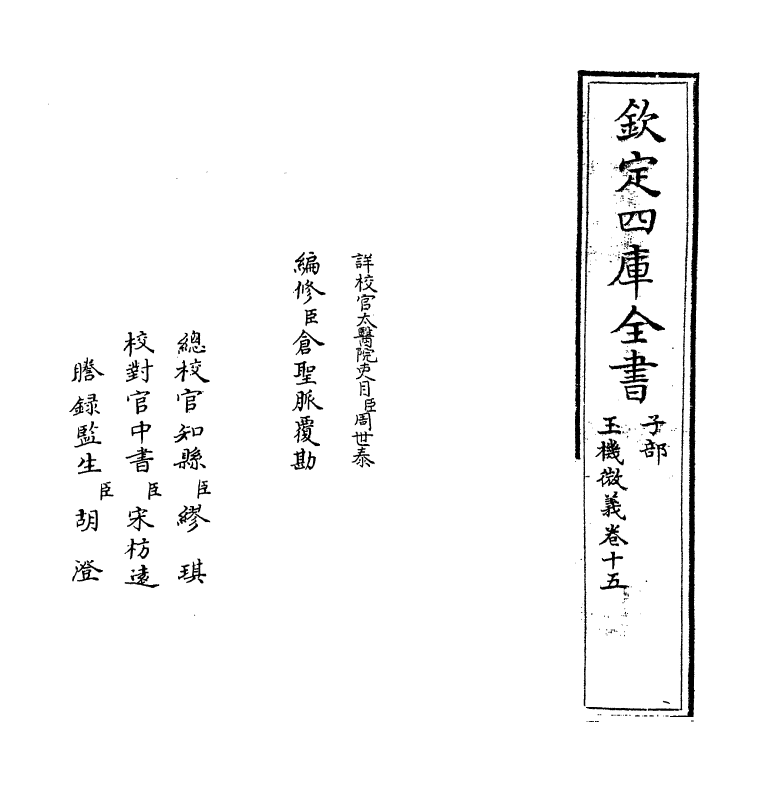 欽定四庫全書
子部
玉機微義卷十五
詳校官太醫院吏目臣周世泰
編修臣倉聖脈覆勘
總校官知縣臣繆琪
校對官中書臣宋枋遠
謄録監生臣胡澄